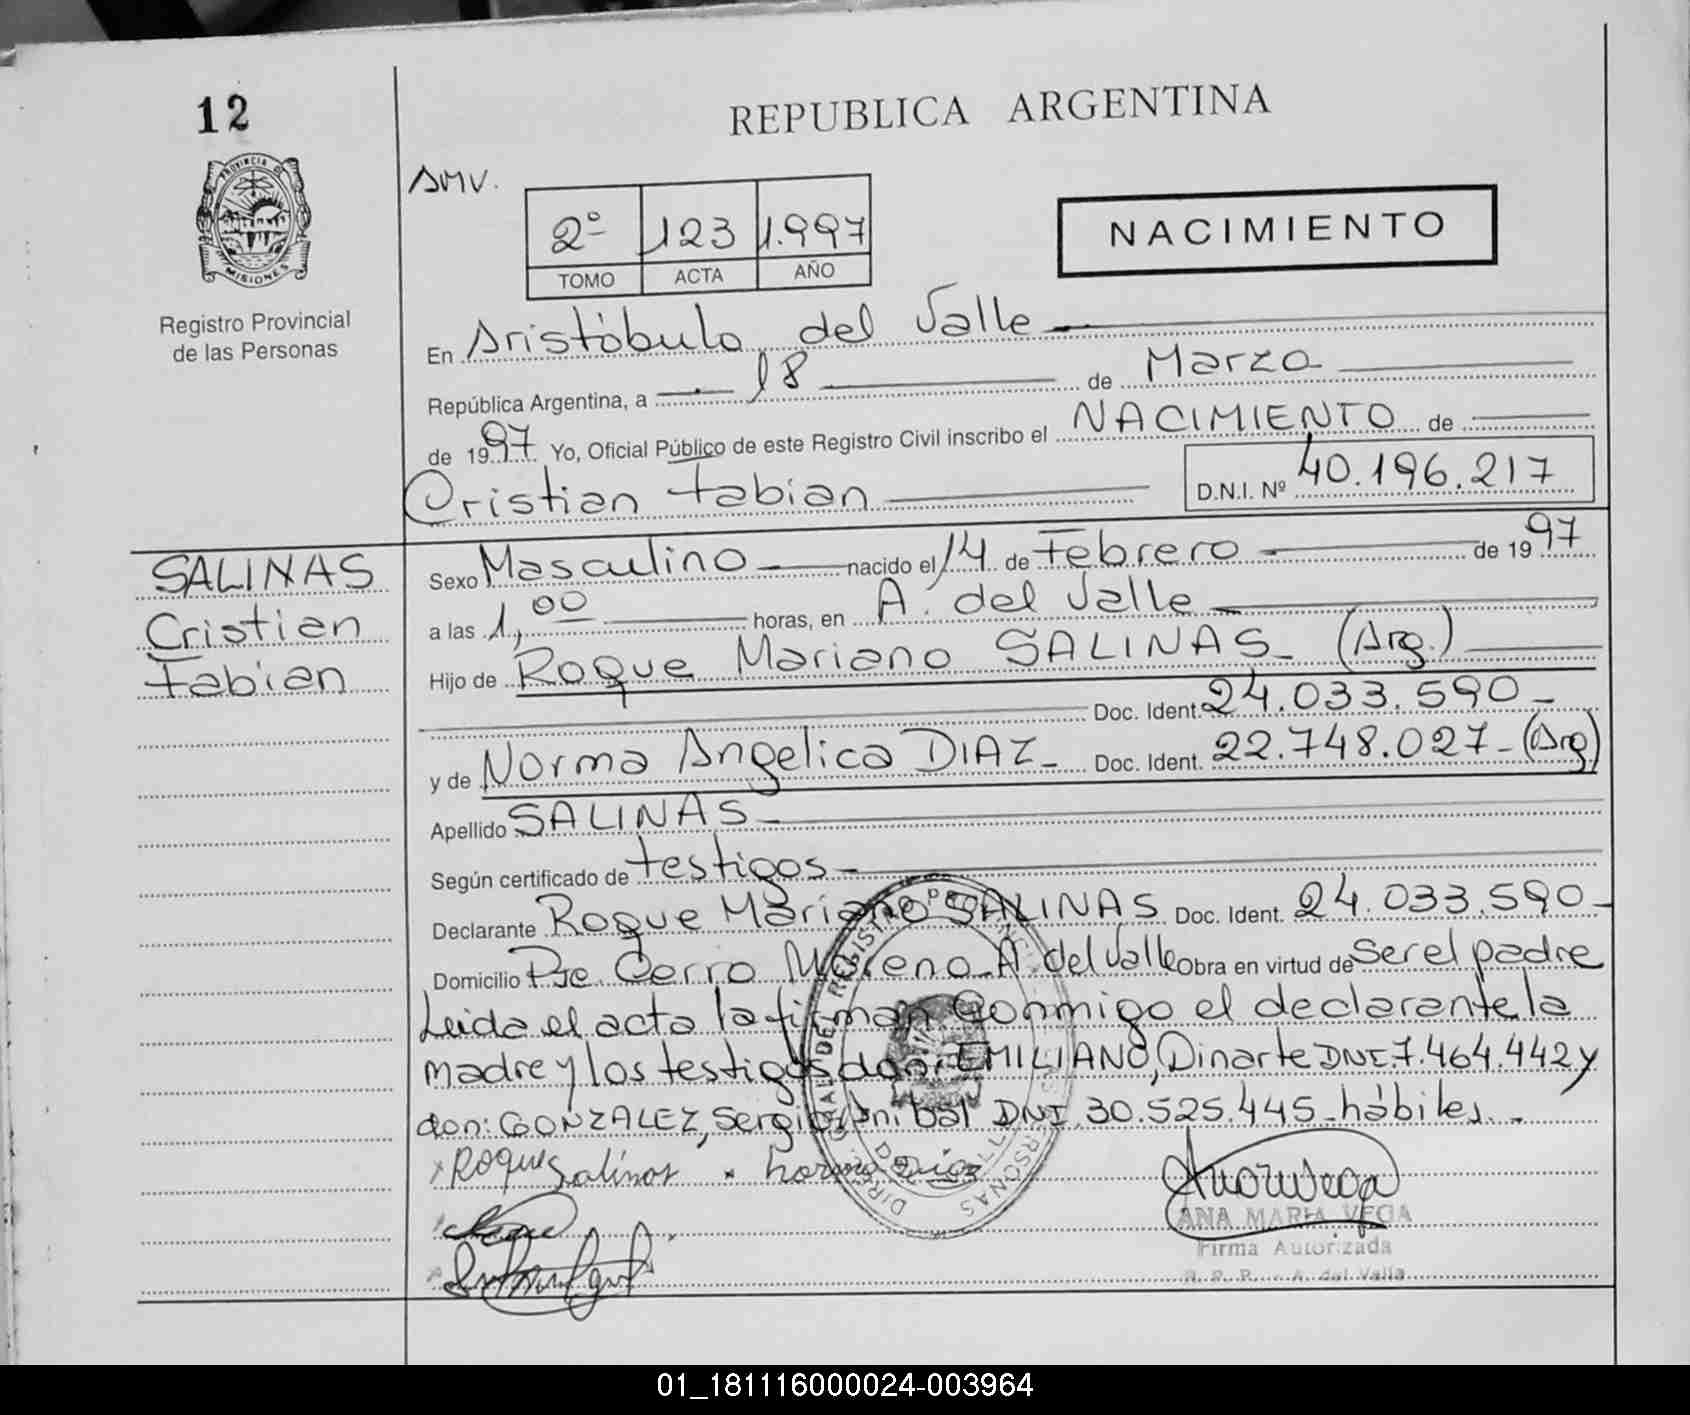 12
PROVINCIA DE
MISIONES
Registro Provincial
de las Personas
REPUBLICA ARGENTINA
SMV.
2º 123 1.997
TOMO ACTA AÑO
NACIMIENTO
En Aristóbulo del Valle
República Argentina, a 18 de Marzo
de 1997 Yo, Oficial Público de este Registro Civil inscribo el NACIMIENTO de
Cristian Fabian D.N.I. Nº 40.196.217
SALINAS
Cristian
Fabian
Sexo Masculino nacido el 14 de Febrero de 1997
a las 1,00 horas, en A. del Valle
Hijo de Roque Mariano SALINAS (Arg.)
Doc. Ident. 24.033.590
y de Norma Angelica DIAZ Doc. Ident. 22.748.027 (Arg)
Apellido SALINAS
Según certificado de testigos
Declarante Roque Mariano SALINAS Doc. Ident. 24.033.590
Domicilio Pje. Cerro Moreno A. del Valle Obra en virtud de ser el padre
Leida el acta la firman conmigo el declarante la
madre y los testigos don: EMILIANO, Dinarte DNI.7.464.442 y
don: GONZALEZ, Sergio Anibal DNI 30.525.445 hábiles.
Roque Salinas norma Diaz
ANA MARIA VEGA
Firma Autorizada
R. P. P. - A. del Valle
01_181116000024-003964